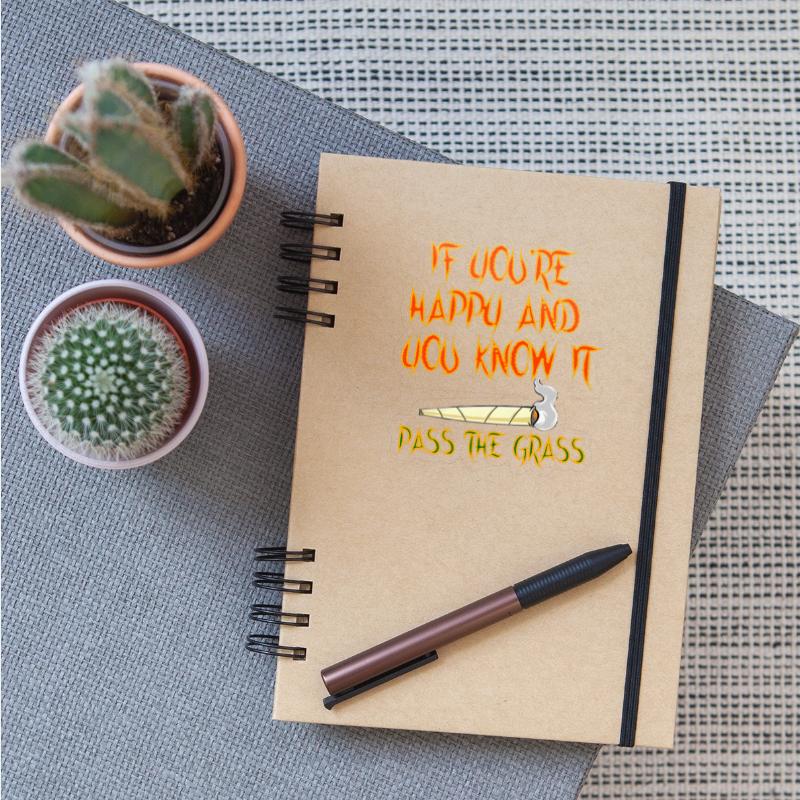 IF YOU'RE
HAPPY AND
YOU KNOW IT
PASS THE GRASS